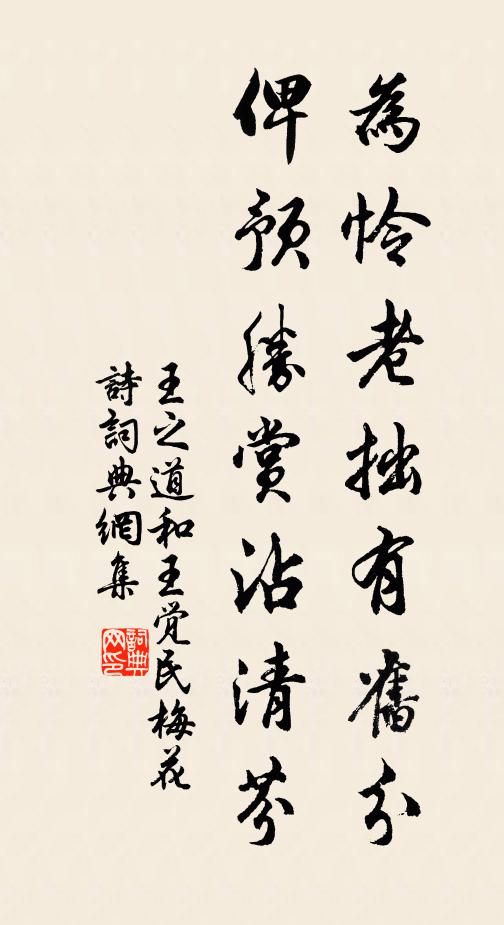 為怜老拙有舊分
俾預勝賞沾清芬
王之道和王觉民梅花
詩詞典網集
詞典网印